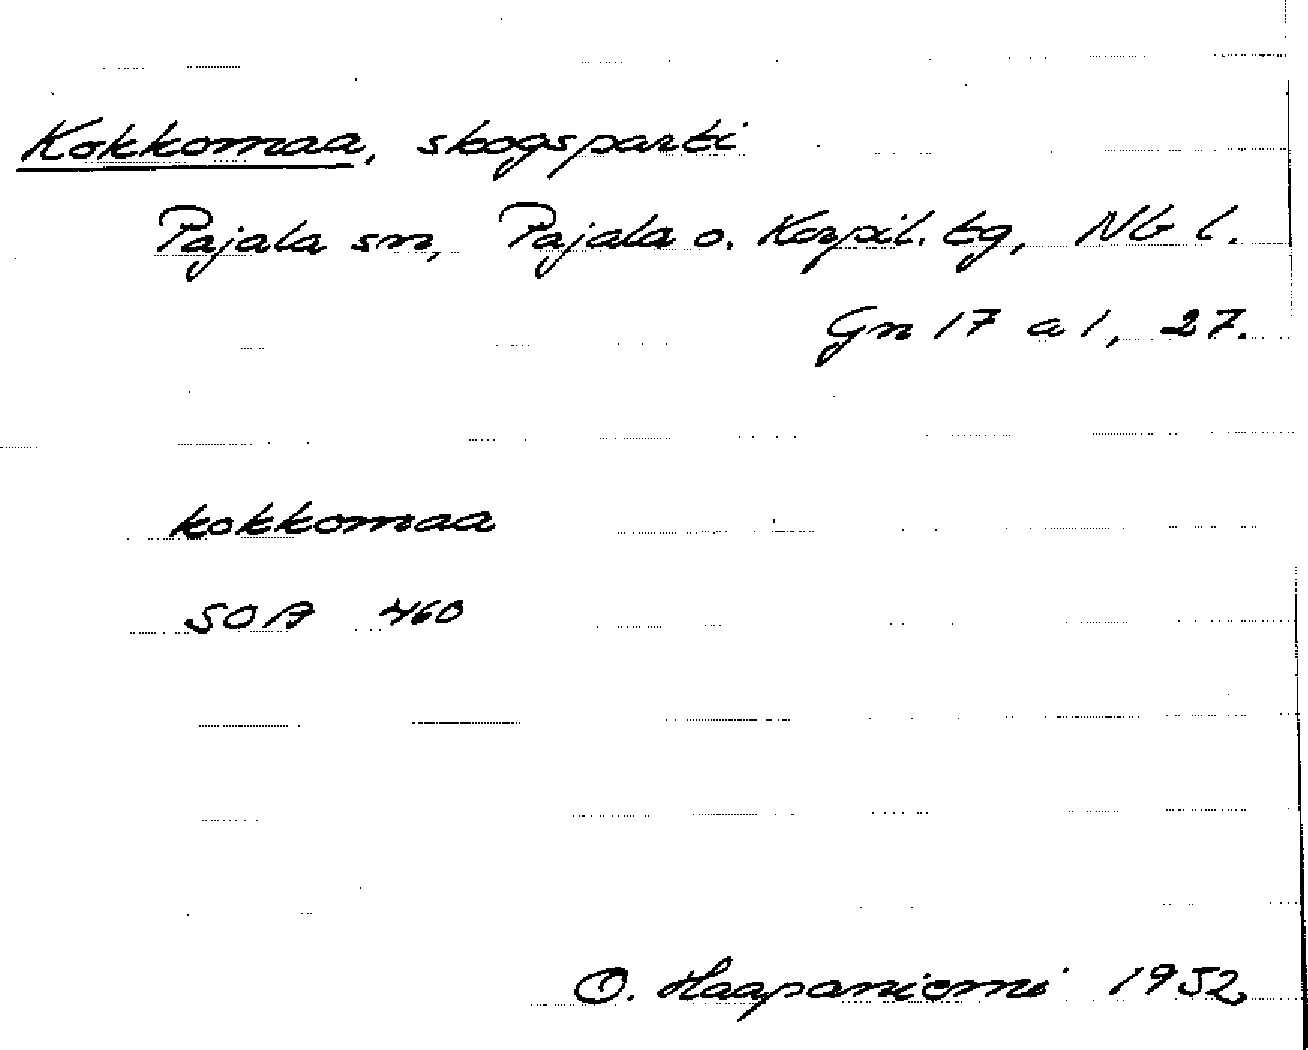 Kokkomaa, skogsparti
Pajala sn, Pajala o. Korpil. tg, Nb l.
Gn 17 a 1, 27.
kokkomaa
SOA 460
O. Haapaniemi 1952